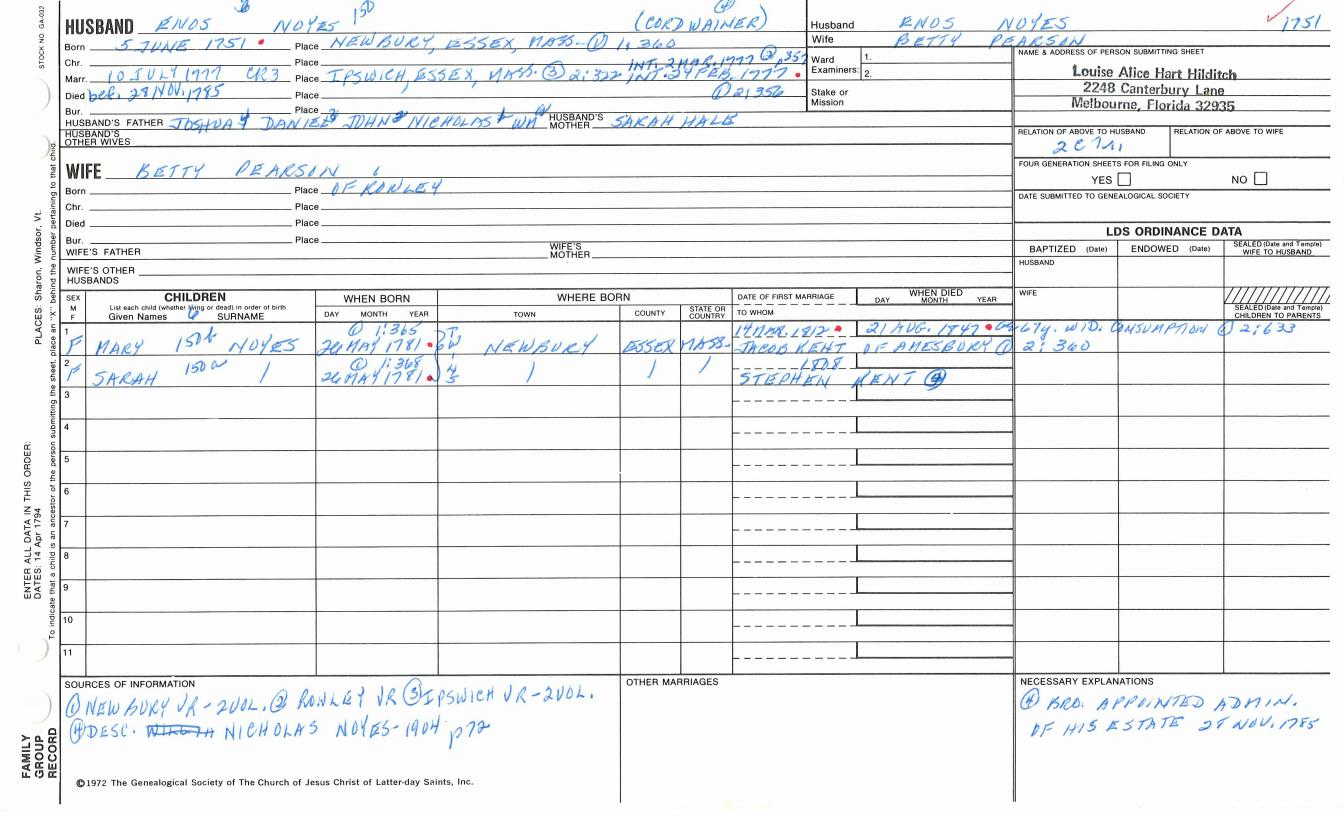 STOCK NO. GA-002
HUSBAND ENOS NOYES 1SD (CORDWAINER) 4
Husband ENOS NOYES 1751
Wife BETTY PEARSON
Born 5 JUNE 1751 Place NEWBURY, ESSEX, MASS. ① 1:360
Chr. Place INT. 2 MAR. 1777 ② p357
Marr. 10 JULY 1777 CR3 Place IPSWICH, ESSEX, MASS. ③ 2:322 INT. 24 FEB. 1777
Died bef. 28 NOV. 1785 Place ① 2:356
Bur. Place
HUSBAND'S FATHER JOSHUA4 DANIEL3 JOHN2 NICHOLAS1 HUSBAND'S MOTHER SARAH HALE
HUSBAND'S OTHER WIVES
Ward Examiners 1.
2.
Stake or Mission
NAME & ADDRESS OF PERSON SUBMITTING SHEET
Louise Alice Hart Hilditch
2248 Canterbury Lane
Melbourne, Florida 32935
RELATION OF ABOVE TO HUSBAND RELATION OF ABOVE TO WIFE
FOUR GENERATION SHEETS FOR FILING ONLY
YES NO
DATE SUBMITTED TO GENEALOGICAL SOCIETY
WIFE BETTY PEARSON
Born Place OF ROWLEY
Chr. Place
Died Place
Bur. Place
WIFE'S FATHER WIFE'S MOTHER
WIFE'S OTHER HUSBANDS
LDS ORDINANCE DATA
BAPTIZED (Date) ENDOWED (Date) SEALED (Date and Temple) WIFE TO HUSBAND
HUSBAND
WIFE
SEALED (Date and Temple) CHILDREN TO PARENTS
SEX M F
CHILDREN
List each child (whether living or dead) in order of birth
Given Names SURNAME
WHEN BORN
DAY MONTH YEAR
WHERE BORN
TOWN COUNTY STATE OR COUNTRY
DATE OF FIRST MARRIAGE
TO WHOM
WHEN DIED
DAY MONTH YEAR
1 ① 1:365 14 MAR. 1812 21 AUG. 1847 67y. WID. CONSUMPTION ① 2:633
F MARY 15Db NOYES 26 MAY 1781 NEWBURY ESSEX MASS. JACOB KENT OF AMESBURY ① 2:360
2 ① 1:368 1808
F SARAH 15Da 26 MAY 1781 STEPHEN KENT ④
3
4
5
6
7
8
9
10
11
SOURCES OF INFORMATION
① NEWBURY VR-2VOL. ② ROWLEY VR ③ IPSWICH VR-2VOL.
④ DESC. NICHOLAS NOYES-1904 p72
OTHER MARRIAGES
NECESSARY EXPLANATIONS
④ BRO. APPOINTED ADMIN.
OF HIS ESTATE 28 NOV. 1785
©1972 The Genealogical Society of The Church of Jesus Christ of Latter-day Saints, Inc.
FAMILY GROUP RECORD
ENTER ALL DATA IN THIS ORDER:
DATES: 14 Apr 1794
PLACES: Sharon, Windsor, Vt.
To indicate that a child is an ancestor of the person submitting the sheet, place an "X" behind the number pertaining to that child.